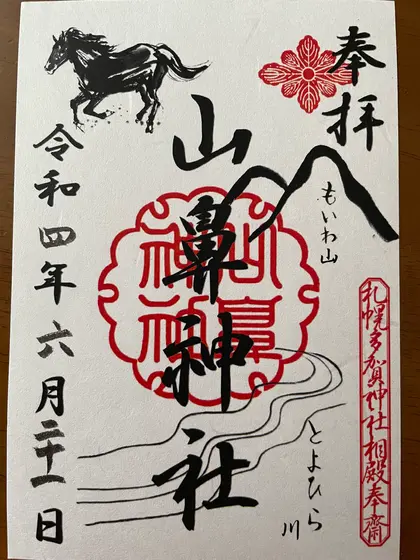 奉拝
もいわ山
札幌多賀神社相殿奉齋
山鼻神社
山鼻神社
とよひら川
令和四年六月二十一日